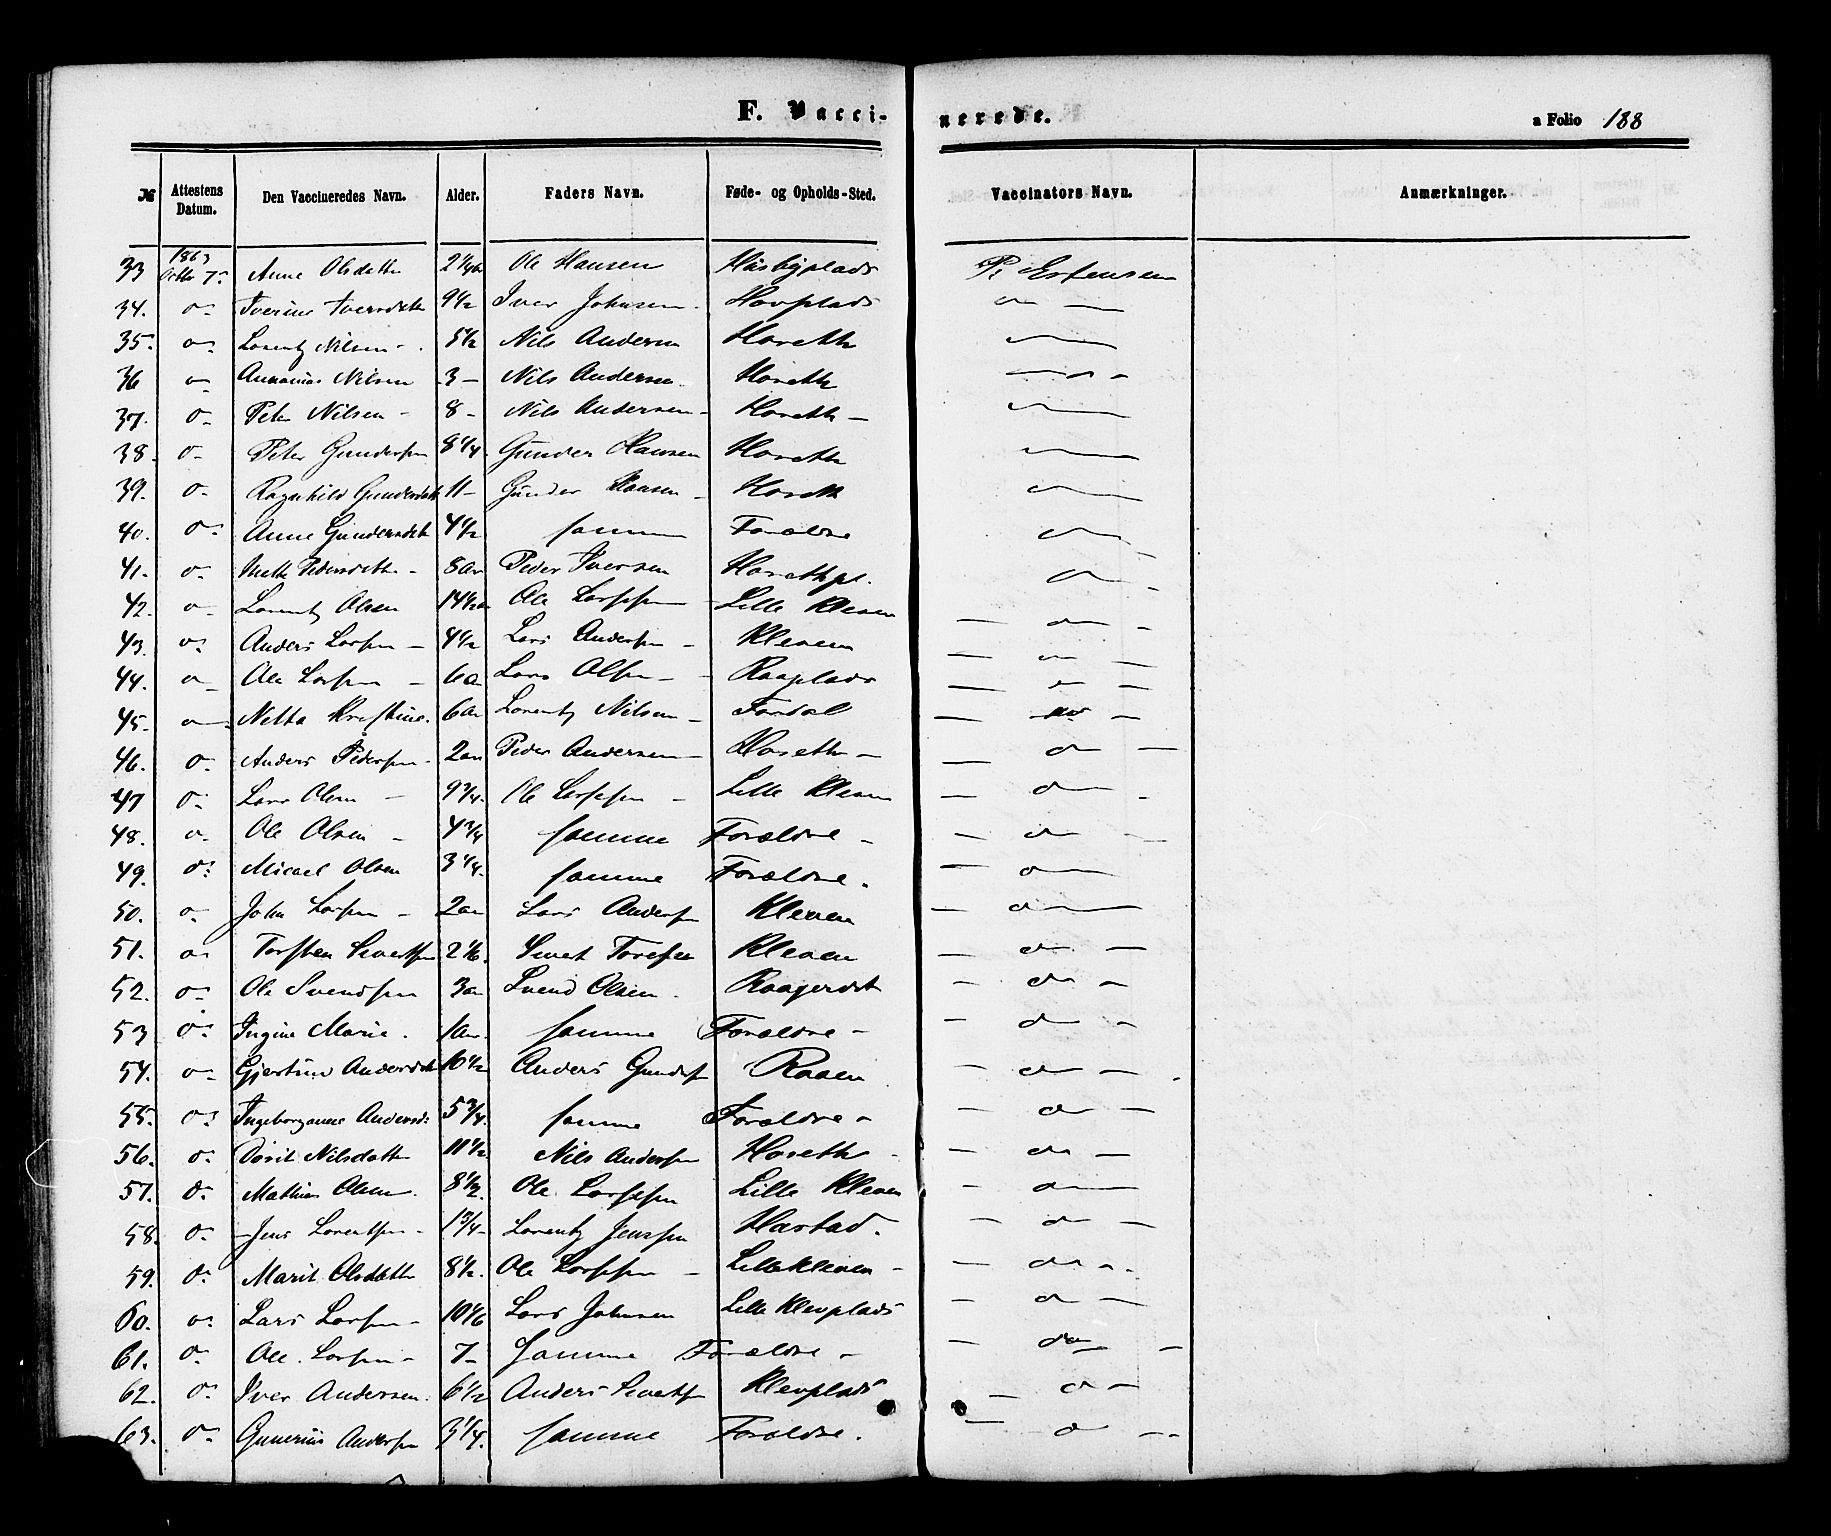 F. Vaccinerede.
a Folio 188
№ Attestens Datum. Den Vaccineredes Navn. Alder. Faders Navn. Føde- og Opholds-Sted. Vaccinators Navn. Anmærkninger.
33 1863 Octbr 7- Anne Olsdatter Ole Hansen P. Estensen
34. o- Iverine Iversdatt 9 1/2 Iver Johnsen Hovplads o —
35. o- Lorentz Nilsen 5 1/2 Nils Andersen Horeth
36 o- Nilsen 3 — Nils Andersen Horeth — o -
37. o- Peter Nilsen 8 - Nils Andersen - Horeth —
38. o- Peter Gundersen 8 1/4 Gunder Hansen Horeth
39. o- Ragnhild Gundersdatt 11 - Gunder Hansen - Horeth
40. o- Anne Gundersdatt 4 1/2 samme Forældre o
41. o- Mette Pedersdatter - 8 ar Peder Iversen Horethpl. o
42. o- Lorentz Olsen 14 1/2 a Ole Larssen Lille Kleven — o -
43. o- Anders Larssen — 4 1/2 Lars Anderssen - Kleven — o —
44. o- Ole Larssen - 6 a Lars Olssen - Raaplads — o —
45. o- Netta Kristine. 6 ar Lorentz Nilsen - Fordal — —
46. o- Anders Pederssen - 2 ar Peder Andersen - Horeth — — o —
47 o- Lars Olsen - 9 3/4. Ole Larssen - Lille Kleven — o -
48. o- Ole Olsen - 4 3/4 samme Forældre - — o —
49. o- Micael Olsen 3 1/4. samme Forældre. — o
50. o- John Larssen - 2 ar Lars Anderssen Kleven — o —
51. o- Torsten Sivertssen 2 1/6. Sivert Toressen Kleven — o —
52. o- Ole Svendssen 3 a Svend Olsen. — o -
53 o- Ingine Marie. 1 ar. samme Forældre - — o -
54. o- Gjertine Andersdatt 10 1/2 Anders Gunderssen Raaen — o -
55. o- Ingeborganne Andersd: 5 3/4. samme Forældre - — o —
56. o- Dorit Nilsdatter 11 1/2 Nils Anderssen Horeth - — o —
57. o- Mathias Olsen. 8 1/2. Ole Larssen Lille Kleven — o —
58. o- Jens Lorentssen - 1 3/4 - Lorentz Jenssen Hastad. — o —
59. o- Marit Olsdatter 8 1/2. Ole Larssen - Lille Kleven - — o -
60. o- Lars Larssen - 10 1/6 Lars Johnsen Lille Klevplads — o —
61. o- Ole Larssen - 7 - Samme Forældre - — o —
62. o- Iver Andersen. 6 1/2 Anders Sivertssen Klevplads — o —
63. o- Gunerius Anderssen 3 1/4. samme Forældre. — o —